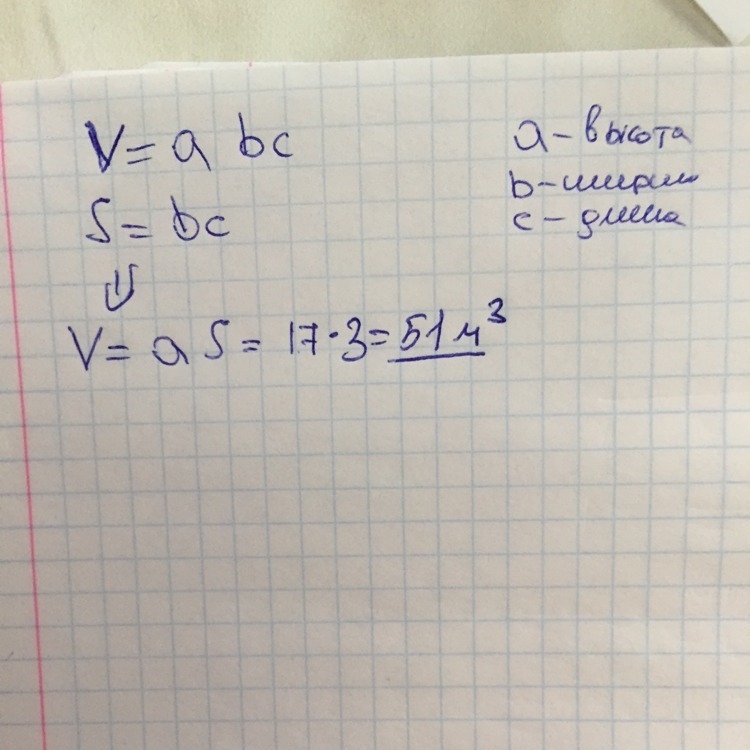 V = a bc
S = bc
⇓
V = a S = 17·3 = 51 м³
a – высота
b – ширина
c – длина